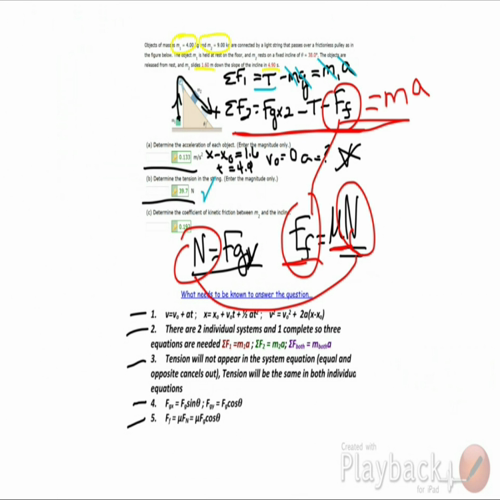 Objects of mass m₁ = 4.00 kg and m₂ = 9.00 kg are connected by a light string that passes over a frictionless pulley as in
the figure below. The object m₁ is held at rest on the floor, and m₂ rests on a fixed incline of θ = 35.0°. The objects are
released from rest, and m₂ slides 1.60 m down the slope of the incline in 4.90 s.
ΣF₁ = T - m₁g = m₁a
+ ΣF₂ = Fgx2 - T - Ff = ma
(a) Determine the acceleration of each object. (Enter the magnitude only.)
0.133 m/s² x-x₀=1.6 v₀=0 a=?
t=4.9
(b) Determine the tension in the string. (Enter the magnitude only.)
39.7 N
(c) Determine the coefficient of kinetic friction between m₂ and the incline.
N=Fgy Ff=μN
What needs to be known to answer the question...
1. v=v₀ + at ; x= x₀ + v₀t + ½ at² ; v² = v₀² + 2a(x-x₀)
2. There are 2 individual systems and 1 complete so three
equations are needed ΣF₁ =m₁a ; ΣF₂ = m₂a; ΣFboth = mbotha
3. Tension will not appear in the system equation (equal and
opposite cancels out), Tension will be the same in both individual
equations
4. Fgx = Fgsinθ ; Fgy = Fgcosθ
5. Ff = μFN = μFgcosθ
Created with
Playback
for iPad